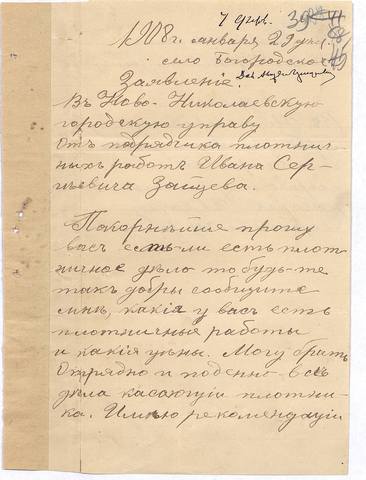 39
1908 г. января 29 дня
село Богородское
Заявленіе.
Въ Ново-Николаевскую
городскую управу
отъ подрядчика плотнич-
ныхъ работъ Ивана Сер-
гѣевича Зайцева.
Покорнѣйше прошу
васъ есть-ли есть плот-
ничное дѣло то будь-те
такъ добры сообщите
мнѣ, какія у васъ есть
плотничные работы
и какія цѣны. Могу брать
отрядно и поденно всѣ
дѣла касающіи плотни-
ка. Имѣю рекомендаціи